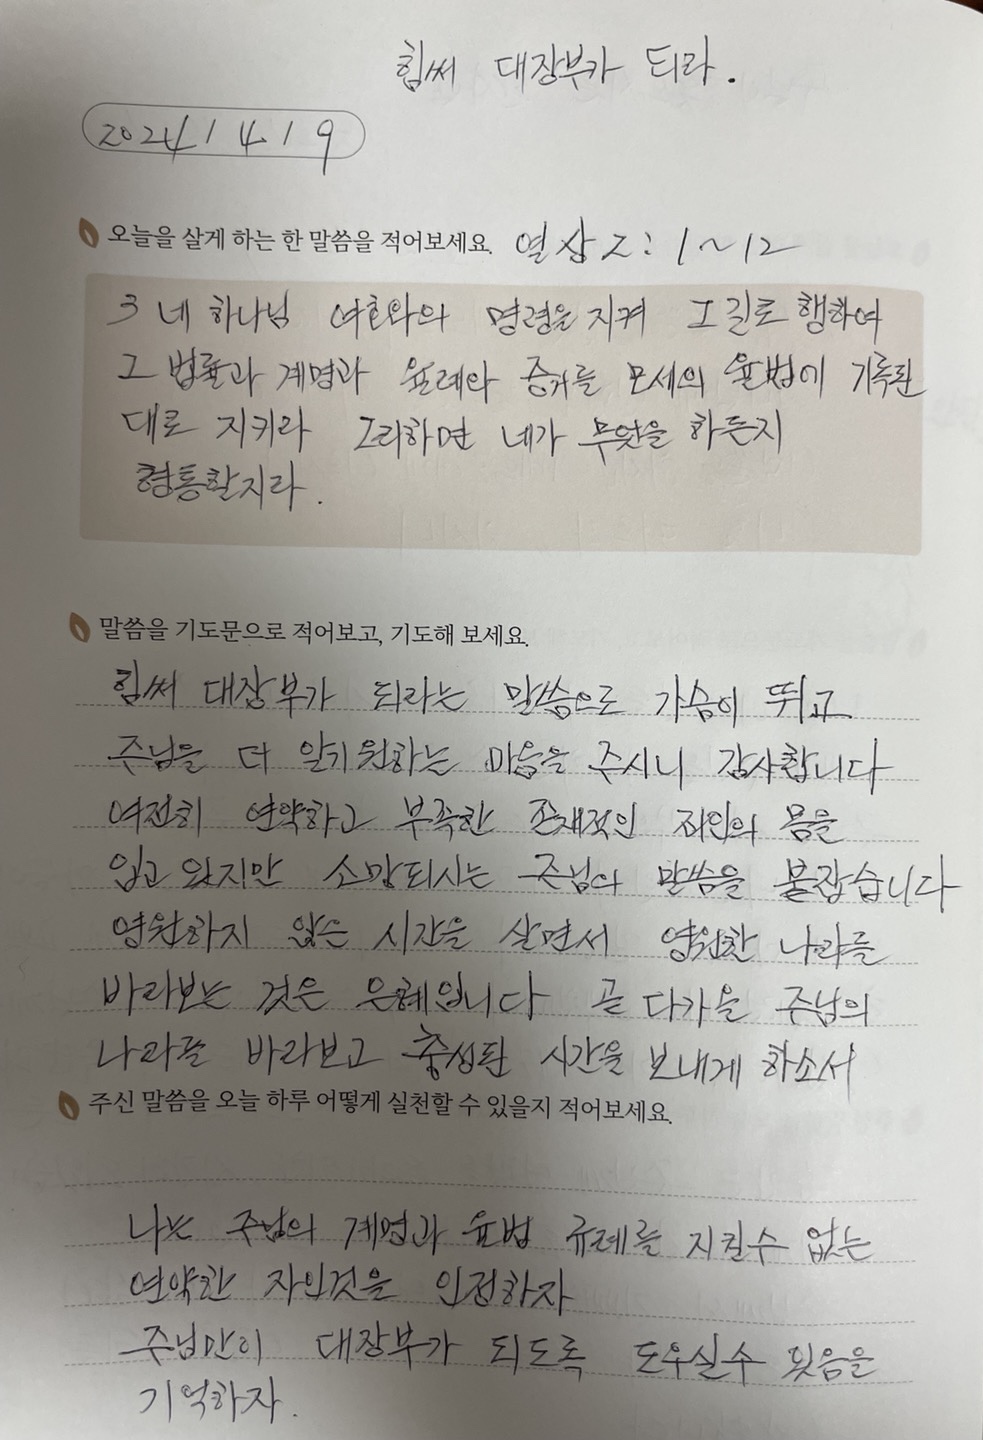 힘써 대장부가 되라.
2024 / 4 / 9
오늘을 살게 하는 한 말씀을 적어보세요. 열상 2:1~12
3 네 하나님 여호와의 명령을 지켜 그 길로 행하여
그 법률과 계명과 율례와 증거를 모세의 율법에 기록된
대로 지키라 그리하면 네가 무엇을 하든지
형통할지라.
말씀을 기도문으로 적어보고, 기도해 보세요.
힘써 대장부가 되라는 말씀으로 가슴이 뛰고
주님을 더 알기 원하는 마음을 주시니 감사합니다
여전히 연약하고 부족한 존재적인 죄인의 몸을
입고 있지만 소망되시는 주님의 말씀을 붙잡습니다
영원하지 않은 시간을 살면서 영원한 나라를
바라보는 것은 은혜입니다 곧 다가올 주님의
나라를 바라보고 충성된 시간을 보내게 하소서
주신 말씀을 오늘 하루 어떻게 실천할 수 있을지 적어보세요.
나는 주님의 계명과 율법 규례를 지킬수 없는
연약한 자인것을 인정하자
주님만이 대장부가 되도록 도우실수 있음을
기억하자.